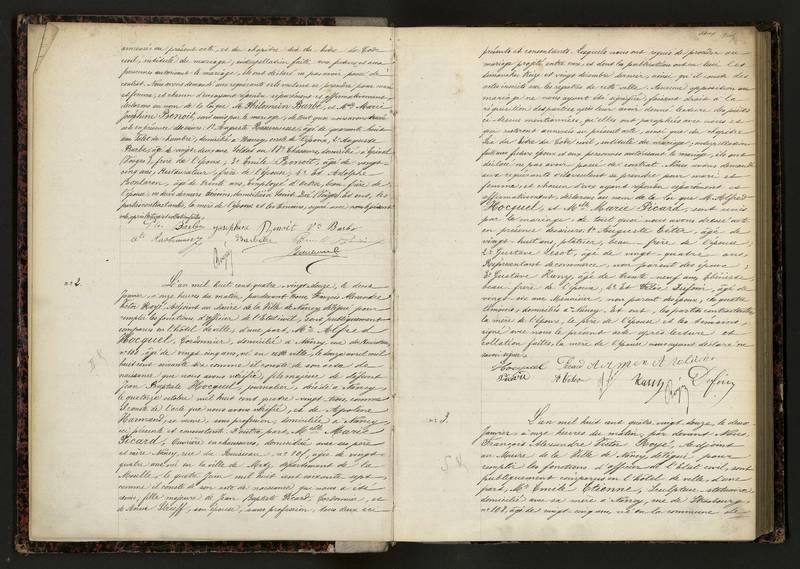 annexées au présent acte, et du chapitre six du livre du Code
civil, intitulé du mariage, interpellation faite aux futurs et aux
personnes autorisant le mariage, ils ont déclaré ne pas avoir passé de
contrat. Nous avons demandé aux requérants s'ils veulent se prendre pour mari
et femme, et chacun d'eux ayant répondu séparément et affirmativement,
déclarons au nom de la Loi que M. Philomain Barbe, et Mlle Marie
Joséphine Benoit, sont unis par le mariage; de tout quoi nous avons dressé
acte en présence de
ans, Valet de chambre, domicilié à Nancy, oncle de l'époux, 2° Auguste
Barbe, âgé de vingt-deux ans, Soldat au 17e Chasseurs, domicilié à Epinal
(Vosges), frère de l'époux, 3° Emile Benoit, âgé de vingt-
cinq ans, Restaurateur, frère de l'épouse, 4° et Adolphe
âgé de trente ans, employé d'octroi, beau-frère de
l'épouse, ces deux derniers témoins domiciliés à Saint-Dié (Vosges), et ont, les
parties contractantes, la mère de l'époux et les témoins, signé avec nous le présent
acte après lecture et collation faites.
Barbe Joséphine Benoit Ve Barbe
n° 2.
L'an mil huit cent quatre vingt douze, le deux
Janvier, à onze heures du matin, par devant Nous François Alexandre
Victor Royé, Adjoint au Maire de la Ville de Nancy, délégué pour
remplir les fonctions d'officier de l'Etat civil, sont publiquement
comparus en l'hôtel de ville, d'une part, Mr. Alfred
Hocquel, Cordonnier, domicilié à Nancy, rue du Ruisseau
âgé de vingt cinq ans, né en cette ville, le douze avril mil
huit cent soixante six, comme il conste de son acte de
naissance que nous avons vérifié, fils majeur de défunt
Jean Baptiste Hocquel, journalier, décédé à Nancy,
le quatorze octobre mil huit cent quatre vingt trois, comme
il conste de l'acte que nous avons vérifié, et de Apoline
Hannand, sa veuve, sans profession, domiciliée à Nancy,
ici présente et consentante. D'autre part, Mlle Marie
Picard, Ouvrière en chaussures, domiciliée avec ses père
et mère Nancy, rue du Ruisseau, âgée de vingt-
quatre ans, née en la ville de Metz, département de la
Moselle, le quatre Juin mil huit cent soixante sept,
comme il conste de son acte de naissance qui nous a été
remis, fille majeure de Jean Baptiste Picard, Cordonnier, et
de Anne son épouse, sans profession, tous deux ici
présents et consentants. Lesquels nous ont requis de procéder au
mariage projeté entre eux, et dont la publication a eu lieu les
dimanches treize et vingt décembre dernier, ainsi qu'il conste des
actes inscrits sur les registres de cette ville. Aucune opposition au
mariage ne nous ayant été signifiée, faisant droit à la
réquisition des parties après leur avoir donné lecture des pièces
ci-dessus mentionnées, qu'elles ont paraphées avec nous et
qui resteront annexées au présent acte, ainsi que du chapitre
six du livre du Code civil, intitulé du mariage, interpellation
faite aux futurs époux et aux personnes autorisant le mariage, ils ont
déclaré ne pas avoir passé de contrat. Nous avons demandé
aux requérants s'ils veulent se prendre pour mari et
femme, et chacun d'eux ayant répondu séparément et
affirmativement, déclarons au nom de la Loi que M. Alfred
Hocquel, et Mlle Marie Picard, sont unis
par le mariage; de tout quoi nous avons dressé acte
en présence des sieurs 1° Auguste âgé de
vingt-huit ans, plâtrier, beau-frère de l'épouse;
2° Gustave âgé de vingt-quatre ans,
Représentant de commerce, non parent des époux;
3° Gustave âgé de trente-neuf ans, ébéniste
beau-frère de l'épouse, 4° et Félix âgé de
vingt-six ans, Menuisier, non parent des époux, ces quatre
témoins, domiciliés à Nancy. Et ont, les parties contractantes,
la mère de l'époux, le père de l'épouse et les témoins,
signé avec nous le présent acte après lecture et
collation faites, la mère de l'épouse nous ayant déclaré ne
savoir signer.
Hocquel
Picard
n° 3.
L'an mil huit cent quatre vingt douze, le deux
Janvier, à onze heures du matin, par devant Nous,
François Alexandre Victor Royé, Adjoint
au Maire de la Ville de Nancy, délégué pour
remplir les fonctions d'officier de l'état civil, sont
publiquement comparus en l'hôtel de ville, d'une
part, Mr. Emile Etienne, Sculpteur statuaire,
domicilié avec sa mère à Nancy, rue de Strasbourg
n° 108, âgé de vingt cinq ans, né en la commune de